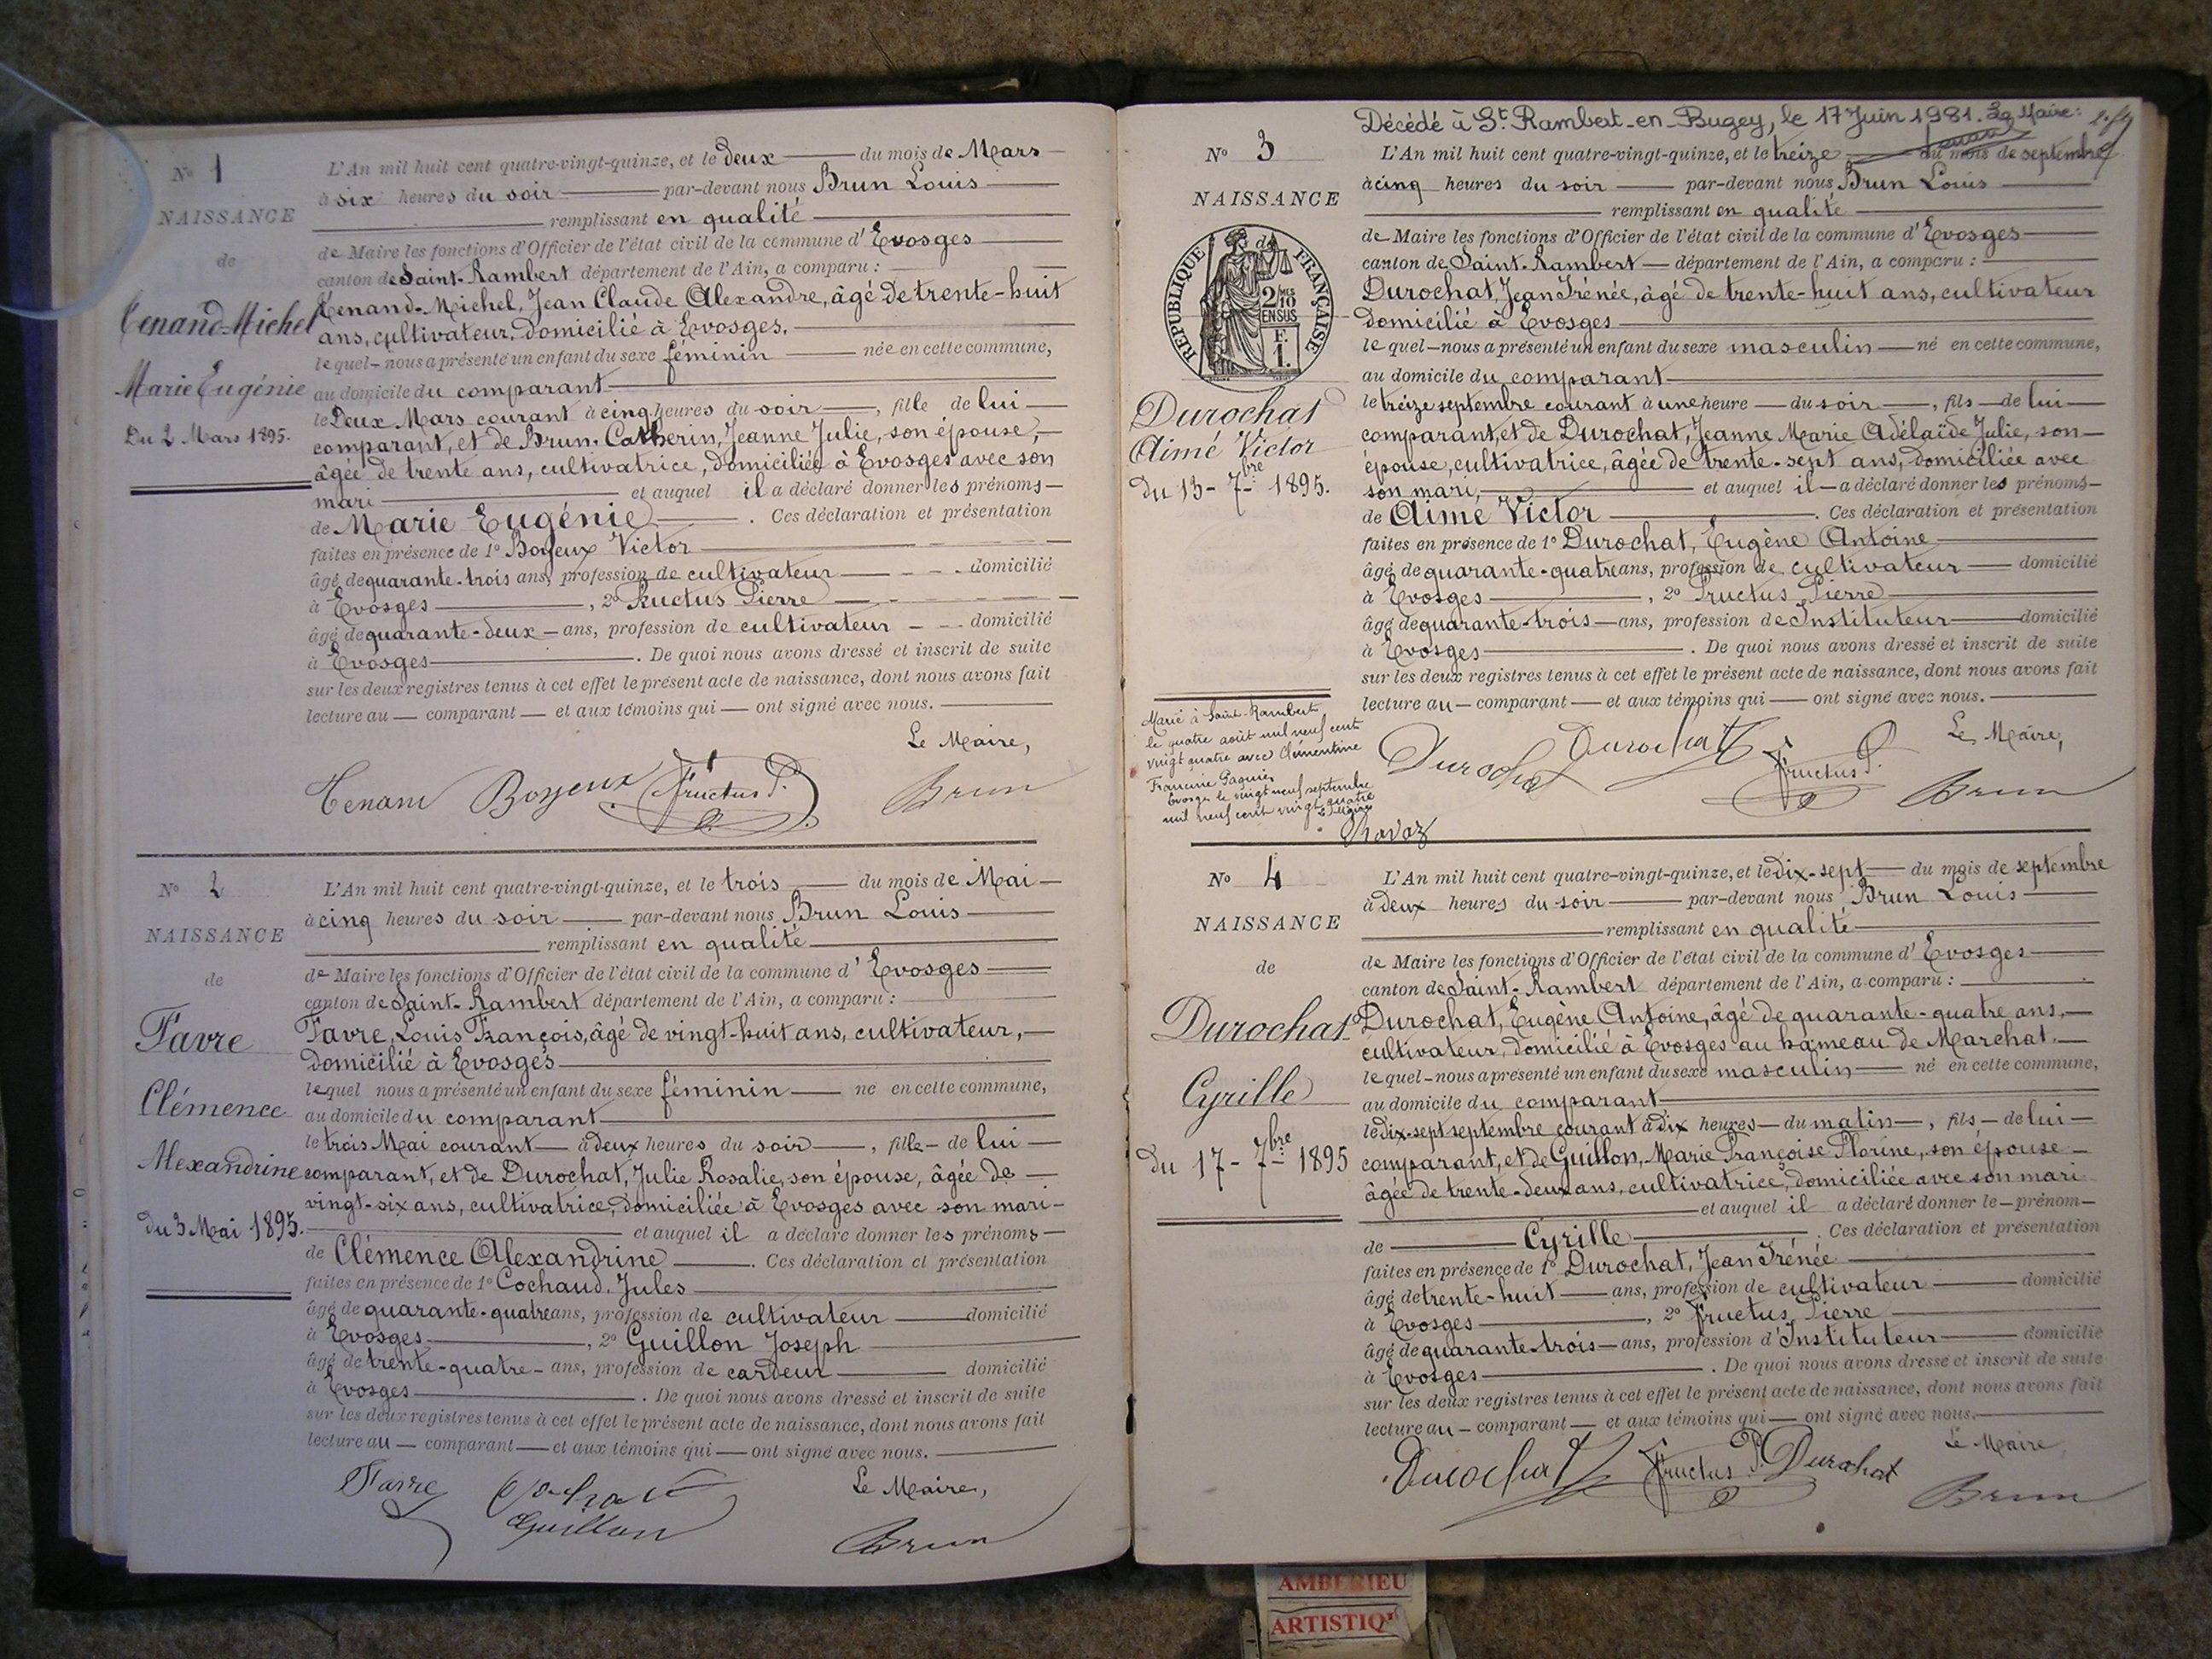 N° 1
NAISSANCE
de
Tenand-Michel
Marie Eugénie
Du 2 Mars 1895.
L'An mil huit cent quatre-vingt-quinze, et le deux du mois de Mars
à six heures du soir par-devant nous Brun Louis
remplissant en qualité
de Maire les fonctions d'Officier de l'état civil de la commune d'Evosges
canton de Saint-Rambert département de l'Ain, a comparu :
Tenand-Michel, Jean Claude Alexandre, âgé de trente-huit
ans, cultivateur, domicilié à Evosges.
lequel nous a présenté un enfant du sexe féminin née en cette commune,
au domicile du comparant
le Deux Mars courant à cinq heures du soir, fille de lui
comparant, et de Brun-Catherin, Jeanne Julie, son épouse,
âgée de trente ans, cultivatrice, domiciliée à Evosges avec son
mari et auquel il a déclaré donner les prénoms
de Marie Eugénie. Ces déclaration et présentation
faites en présence de 1° Boyeux Victor
âgé de quarante-trois ans, profession de cultivateur domicilié
à Evosges, 2° Fructus Pierre
âgé de quarante-deux ans, profession de cultivateur domicilié
à Evosges. De quoi nous avons dressé et inscrit de suite
sur les deux registres tenus à cet effet le présent acte de naissance, dont nous avons fait
lecture au comparant et aux témoins qui ont signé avec nous.
Le Maire,
Tenand Boyeux Fructus P. Brun
N° 2
NAISSANCE
de
Favre
Clémence
Alexandrine
du 3 Mai 1895.
L'An mil huit cent quatre-vingt-quinze, et le trois du mois de Mai
à cinq heures du soir par-devant nous Brun Louis
remplissant en qualité
de Maire les fonctions d'Officier de l'état civil de la commune d'Evosges
canton de Saint-Rambert département de l'Ain, a comparu :
Favre, Louis François, âgé de vingt-huit ans, cultivateur,
domicilié à Evosges
lequel nous a présenté un enfant du sexe féminin né en cette commune,
au domicile du comparant
le trois Mai courant à deux heures du soir, fille de lui
comparant, et de Durochat, Julie Rosalie, son épouse, âgée de
vingt-six ans, cultivatrice, domiciliée à Evosges avec son mari
et auquel il a déclaré donner les prénoms
de Clémence Alexandrine. Ces déclaration et présentation
faites en présence de 1° Cochaud, Jules
âgé de quarante-quatre ans, profession de cultivateur domicilié
à Evosges, 2° Guillon Joseph
âgé de trente-quatre ans, profession de cardeur domicilié
à Evosges. De quoi nous avons dressé et inscrit de suite
sur les deux registres tenus à cet effet le présent acte de naissance, dont nous avons fait
lecture au comparant et aux témoins qui ont signé avec nous.
Le Maire,
Favre
Guillon
Brun
Décédé à St Rambert-en-Bugey, le 17 Juin 1981. Le Maire:
N° 3
NAISSANCE
de
RÉPUBLIQUE FRANÇAISE
2/10 MES
EN SUS
F.
1.
Durochat
Aimé Victor
du 13 - 7bre 1895.
L'An mil huit cent quatre-vingt-quinze, et le treize du mois de septembre
à cinq heures du soir par-devant nous Brun Louis
remplissant en qualité
de Maire les fonctions d'Officier de l'état civil de la commune d'Evosges
canton de Saint-Rambert département de l'Ain, a comparu :
Durochat, Jean Irénée, âgé de trente-huit ans, cultivateur
domicilié à Evosges
lequel nous a présenté un enfant du sexe masculin né en cette commune,
au domicile du comparant
le treize septembre courant à une heure du soir, fils de lui
comparant, et de Durochat, Jeanne Marie Adélaïde Julie, son
épouse, cultivatrice, âgée de trente-sept ans, domiciliée avec
son mari, et auquel il a déclaré donner les prénoms
de Aimé Victor. Ces déclaration et présentation
faites en présence de 1° Durochat, Eugène Antoine
âgé de quarante-quatre ans, profession de cultivateur domicilié
à Evosges, 2° Fructus Pierre
âgé de quarante-trois ans, profession de Instituteur domicilié
à Evosges. De quoi nous avons dressé et inscrit de suite
sur les deux registres tenus à cet effet le présent acte de naissance, dont nous avons fait
lecture au comparant et aux témoins qui ont signé avec nous.
Le Maire,
Durochat Durochat Fructus P. Brun
Marié à Saint-Rambert
le quatre août mil neuf cent
vingt quatre avec Clémentine
Francine Pagnier
Evosges le vingt neuf septembre
mil neuf cent vingt quatre
Le Maire
Ravaz
N° 4
NAISSANCE
de
Durochat
Cyrille
du 17 - 7bre 1895
L'An mil huit cent quatre-vingt-quinze, et le dix-sept du mois de septembre
à deux heures du soir par-devant nous Brun Louis
remplissant en qualité
de Maire les fonctions d'Officier de l'état civil de la commune d'Evosges
canton de Saint-Rambert département de l'Ain, a comparu :
Durochat, Eugène Antoine, âgé de quarante-quatre ans,
cultivateur, domicilié à Evosges au hameau de Marchat.
lequel nous a présenté un enfant du sexe masculin né en cette commune,
au domicile du comparant
le dix-sept septembre courant à dix heures du matin, fils de lui
comparant, et de Guillon, Marie Françoise Florine, son épouse
âgée de trente-deux ans, cultivatrice, domiciliée avec son mari
et auquel il a déclaré donner le prénom
de Cyrille. Ces déclaration et présentation
faites en présence de 1° Durochat, Jean Irénée
âgé de trente-huit ans, profession de cultivateur domicilié
à Evosges, 2° Fructus, Pierre
âgé de quarante-trois ans, profession d'Instituteur domicilié
à Evosges. De quoi nous avons dressé et inscrit de suite
sur les deux registres tenus à cet effet le présent acte de naissance, dont nous avons fait
lecture au comparant et aux témoins qui ont signé avec nous.
Le Maire,
Durochat Fructus P. Durochat Brun
AMBERIEU
ARTISTIQ